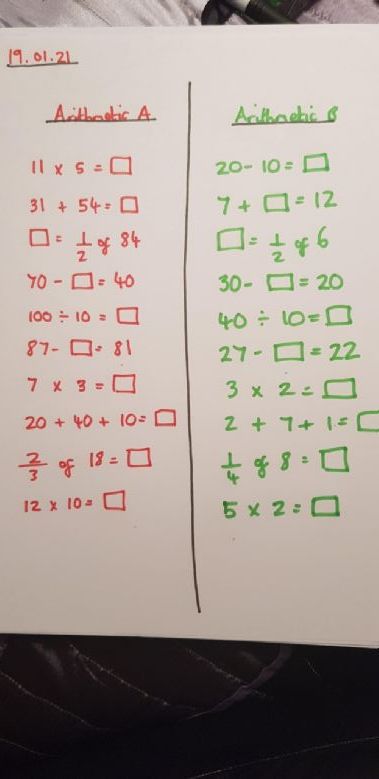 19.01.21
Arithmetic A
11 x 5 = □
31 + 54 = □
□ = 1/2 of 84
70 - □ = 40
100 ÷ 10 = □
87 - □ = 81
7 x 3 = □
20 + 40 + 10 = □
2/3 of 18 = □
12 x 10 = □
Arithmetic B
20 - 10 = □
7 + □ = 12
□ = 1/2 of 6
30 - □ = 20
40 ÷ 10 = □
27 - □ = 22
3 x 2 = □
2 + 7 + 1 = □
1/4 of 8 = □
5 x 2 = □